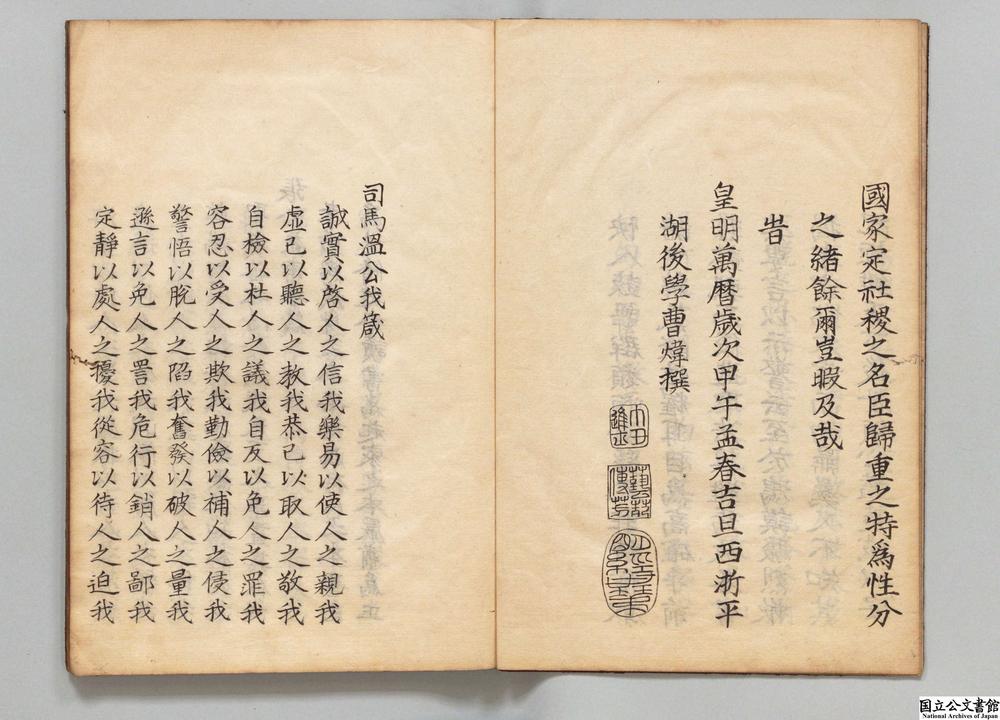 國家定社稷之名臣歸重之特爲性分
之緒餘爾豈暇及哉
旹
皇明萬曆歲次甲午孟春吉旦西浙平
湖後學曹煒撰
司馬溫公我箴
誠實以啓人之信我樂易以使人之親我
虛己以聽人之教我恭己以取人之敬我
自檢以杜人之議我自反以免人之罪我
容忍以受人之欺我勤儉以補人之侵我
警悟以脫人之陷我奮發以破人之量我
遜言以免人之詈我危行以銷人之鄙我
定靜以處人之擾我從容以待人之迫我
国立公文書館
National Archives of Japan